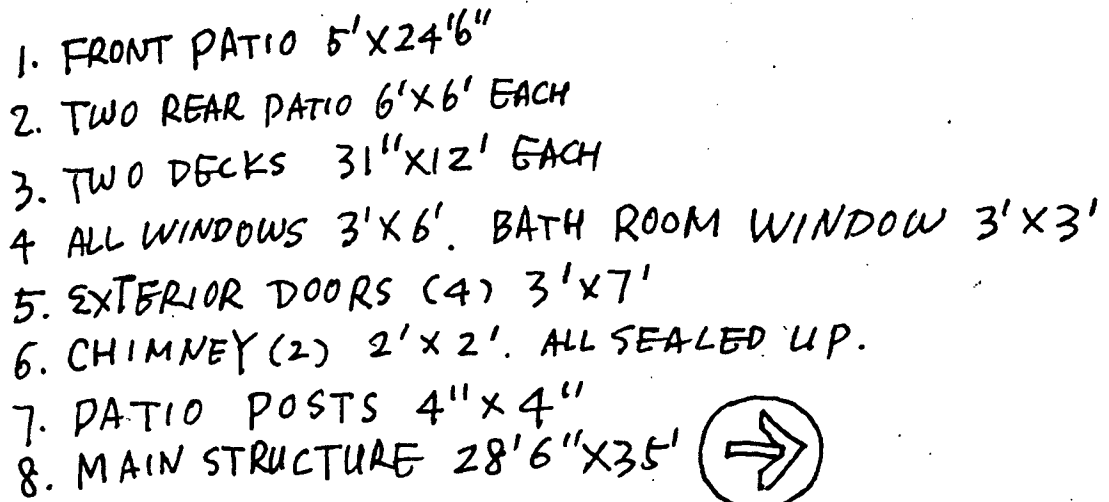 1. FRONT PATIO 5'X24'6"
2. TWO REAR PATIO 6'X6' EACH
3. TWO DECKS 31"X12' EACH
4 ALL WINDOWS 3'X6'. BATH ROOM WINDOW 3'X3'
5. EXTERIOR DOORS (4) 3'X7'
6. CHIMNEY (2) 2'X2'. ALL SEALED UP.
7. PATIO POSTS 4"X4"
8. MAIN STRUCTURE 28'6"X35'